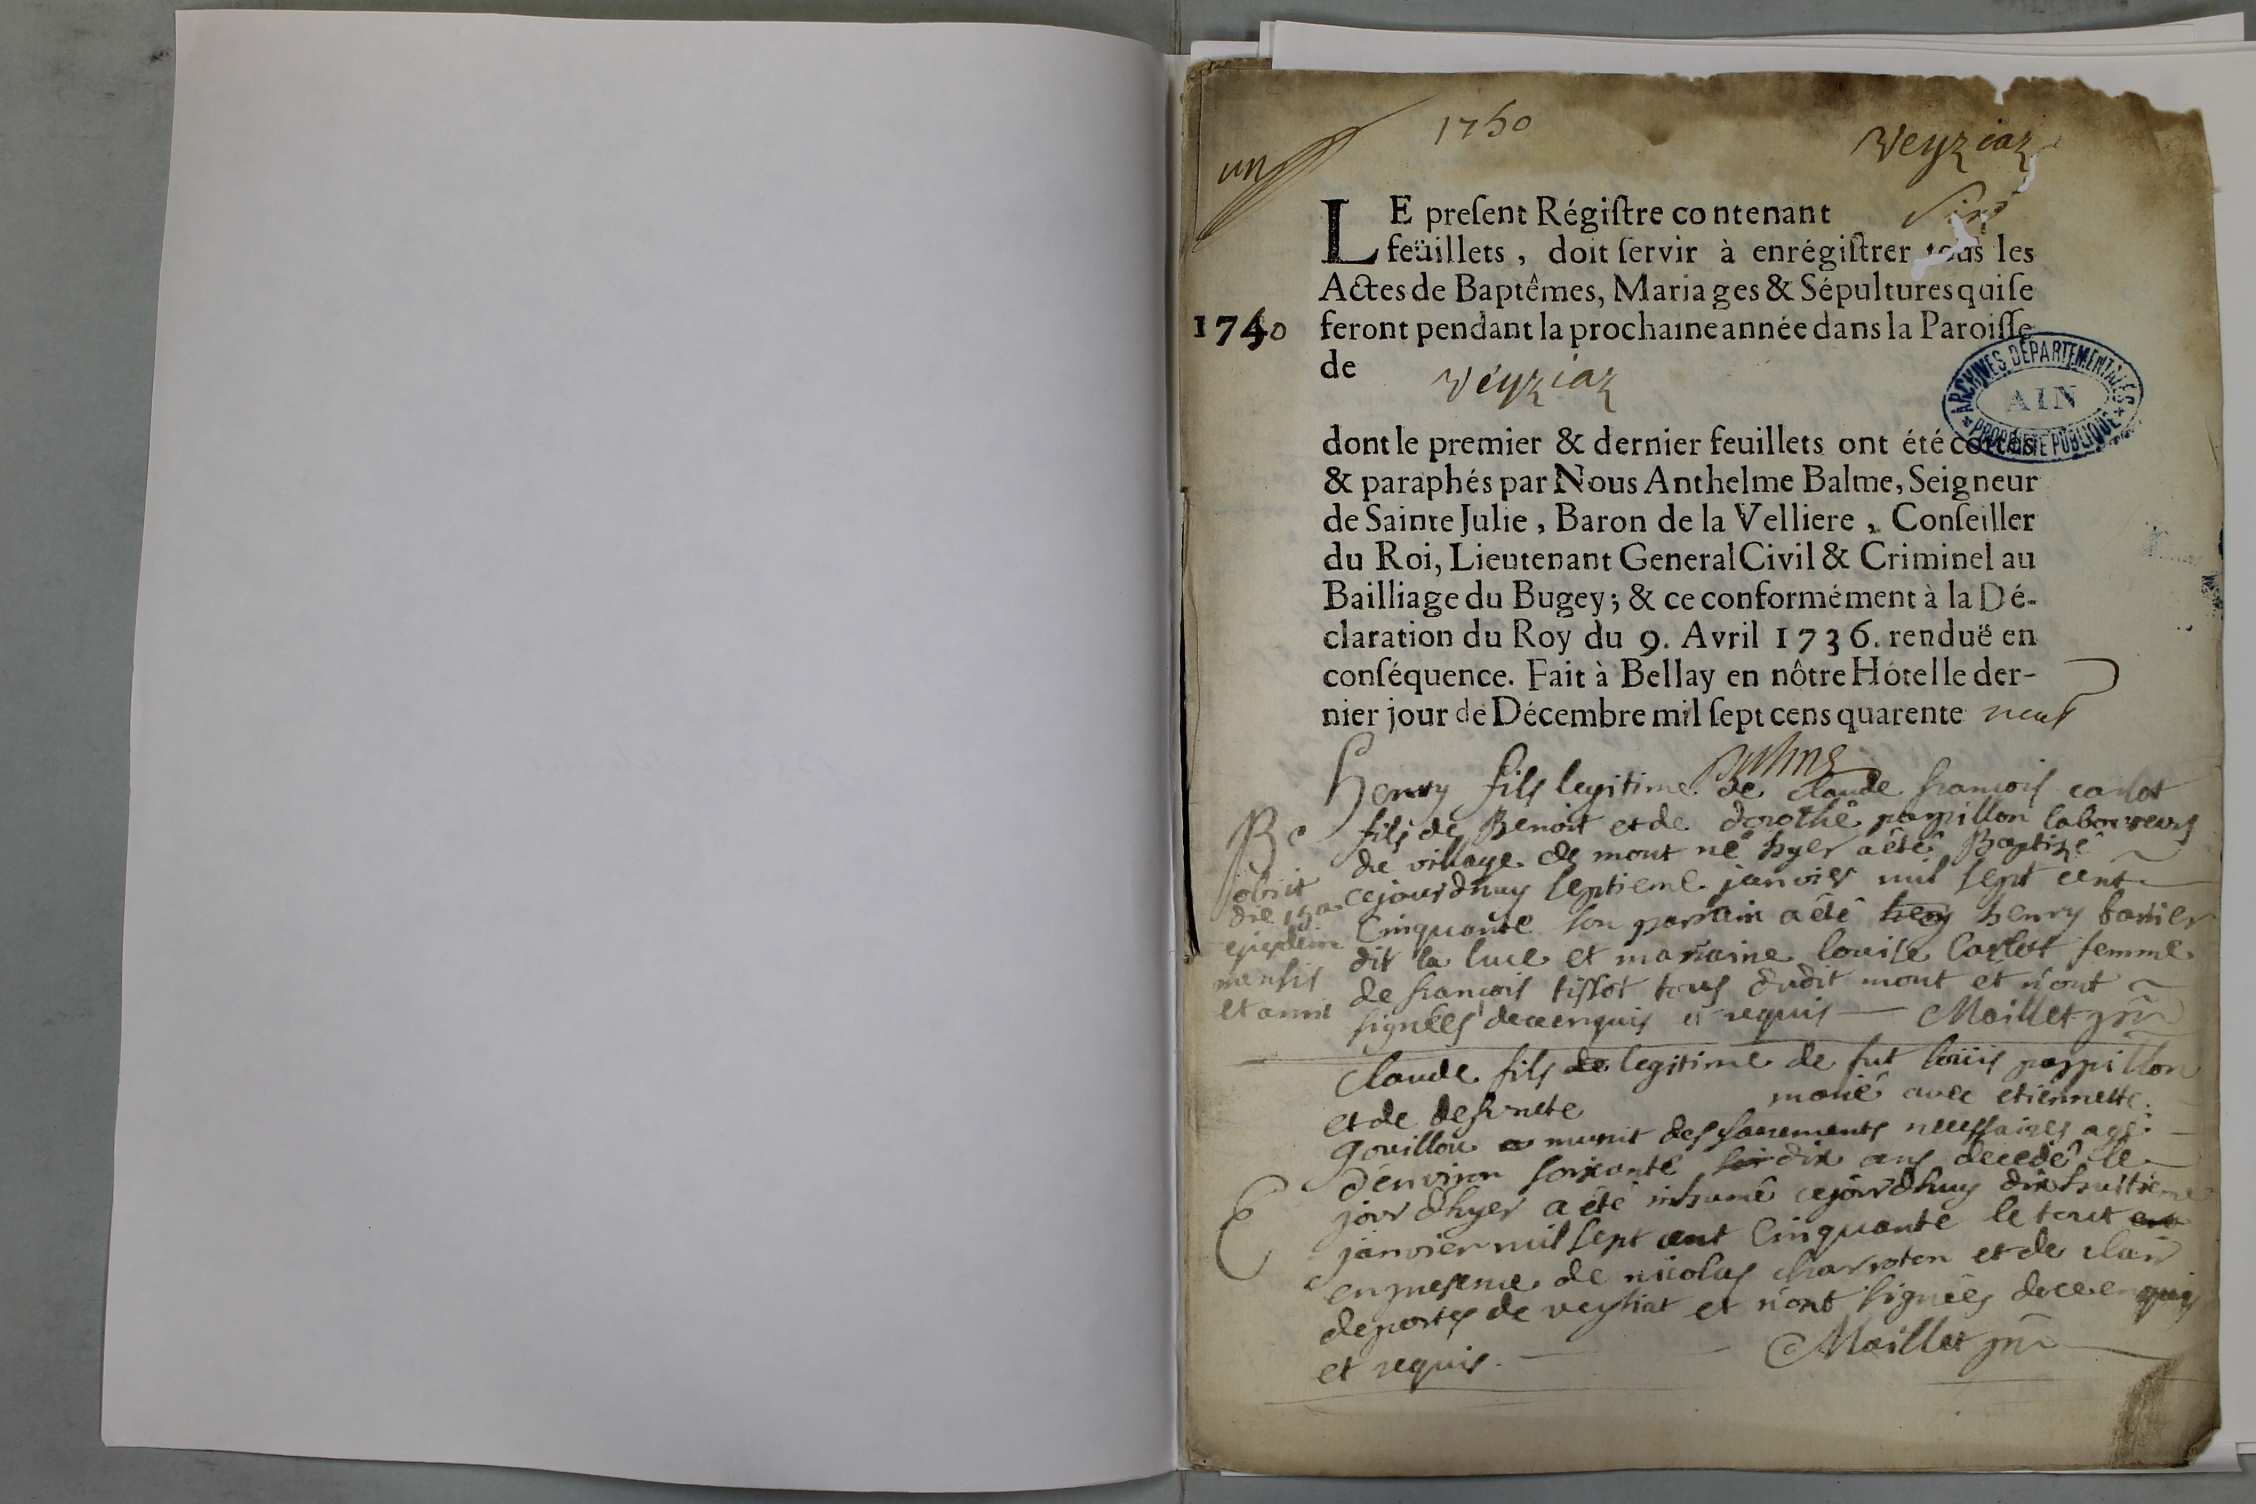 1750
Veyziaz
un
Six
LE preſent Régiſtre contenant
feüillets, doit ſervir à enrégiſtrer tous les
Actes de Baptêmes, Mariages & Sépultures qui ſe
1740 feront pendant la prochaine année dans la Paroiſſe
de Veyziaz
ARCHIVES DÉPARTEMENTALES
AIN
PROPRIÉTÉ PUBLIQUE
dont le premier & dernier feuillets ont été cottés
& paraphés par Nous Anthelme Balme, Seigneur
de Sainte Julie, Baron de la Velliere, Conſeiller
du Roi, Lieutenant General Civil & Criminel au
Bailliage du Bugey; & ce conformément à la Dé-
claration du Roy du 9. Avril 1736. renduë en
conſéquence. Fait à Bellay en nôtre Hótel le der-
nier jour de Décembre mil ſept cens quarente neuf
Balme
henry fils legitime de claude françois carlot
fils de Benoit et de dorothé pappillon laboureurs
du village de mont né hyer a été Baptizé
cejourdhuy septieme janvier mil sept cent
Cinquante son parrain a été heny henry
dit la luce et maraine louise Carlot femme
de françois tissot tous dudit mont et n'ont
signées de ce enquis et requis Maillet
B
obiit
die 15a
ejusdem
mensis
et anni
Claude fils de legitime de fut louis pappillon
et de defunete marié avec etiennette
Gouillou munit des sacrements necessaires agé
d'environ soixante dix ans decedé le
jour d'hyer a été inhumé cejourdhuy dixhuitieme
janvier mil sept cent Cinquante le tout
en presence de nicolas charroton et de clair
deportes de veysiat et n'ont signées de ce enquis
et requis. Maillet